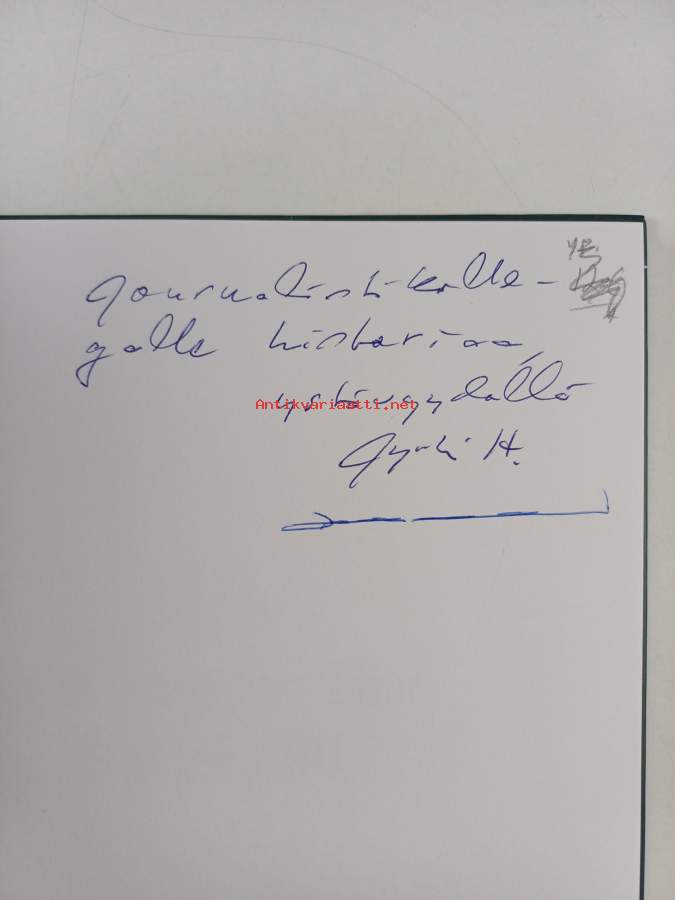 Journalistikolle-
galle historiaa
ystävyydellä
Jyrki H.
Antikvariaatti.net